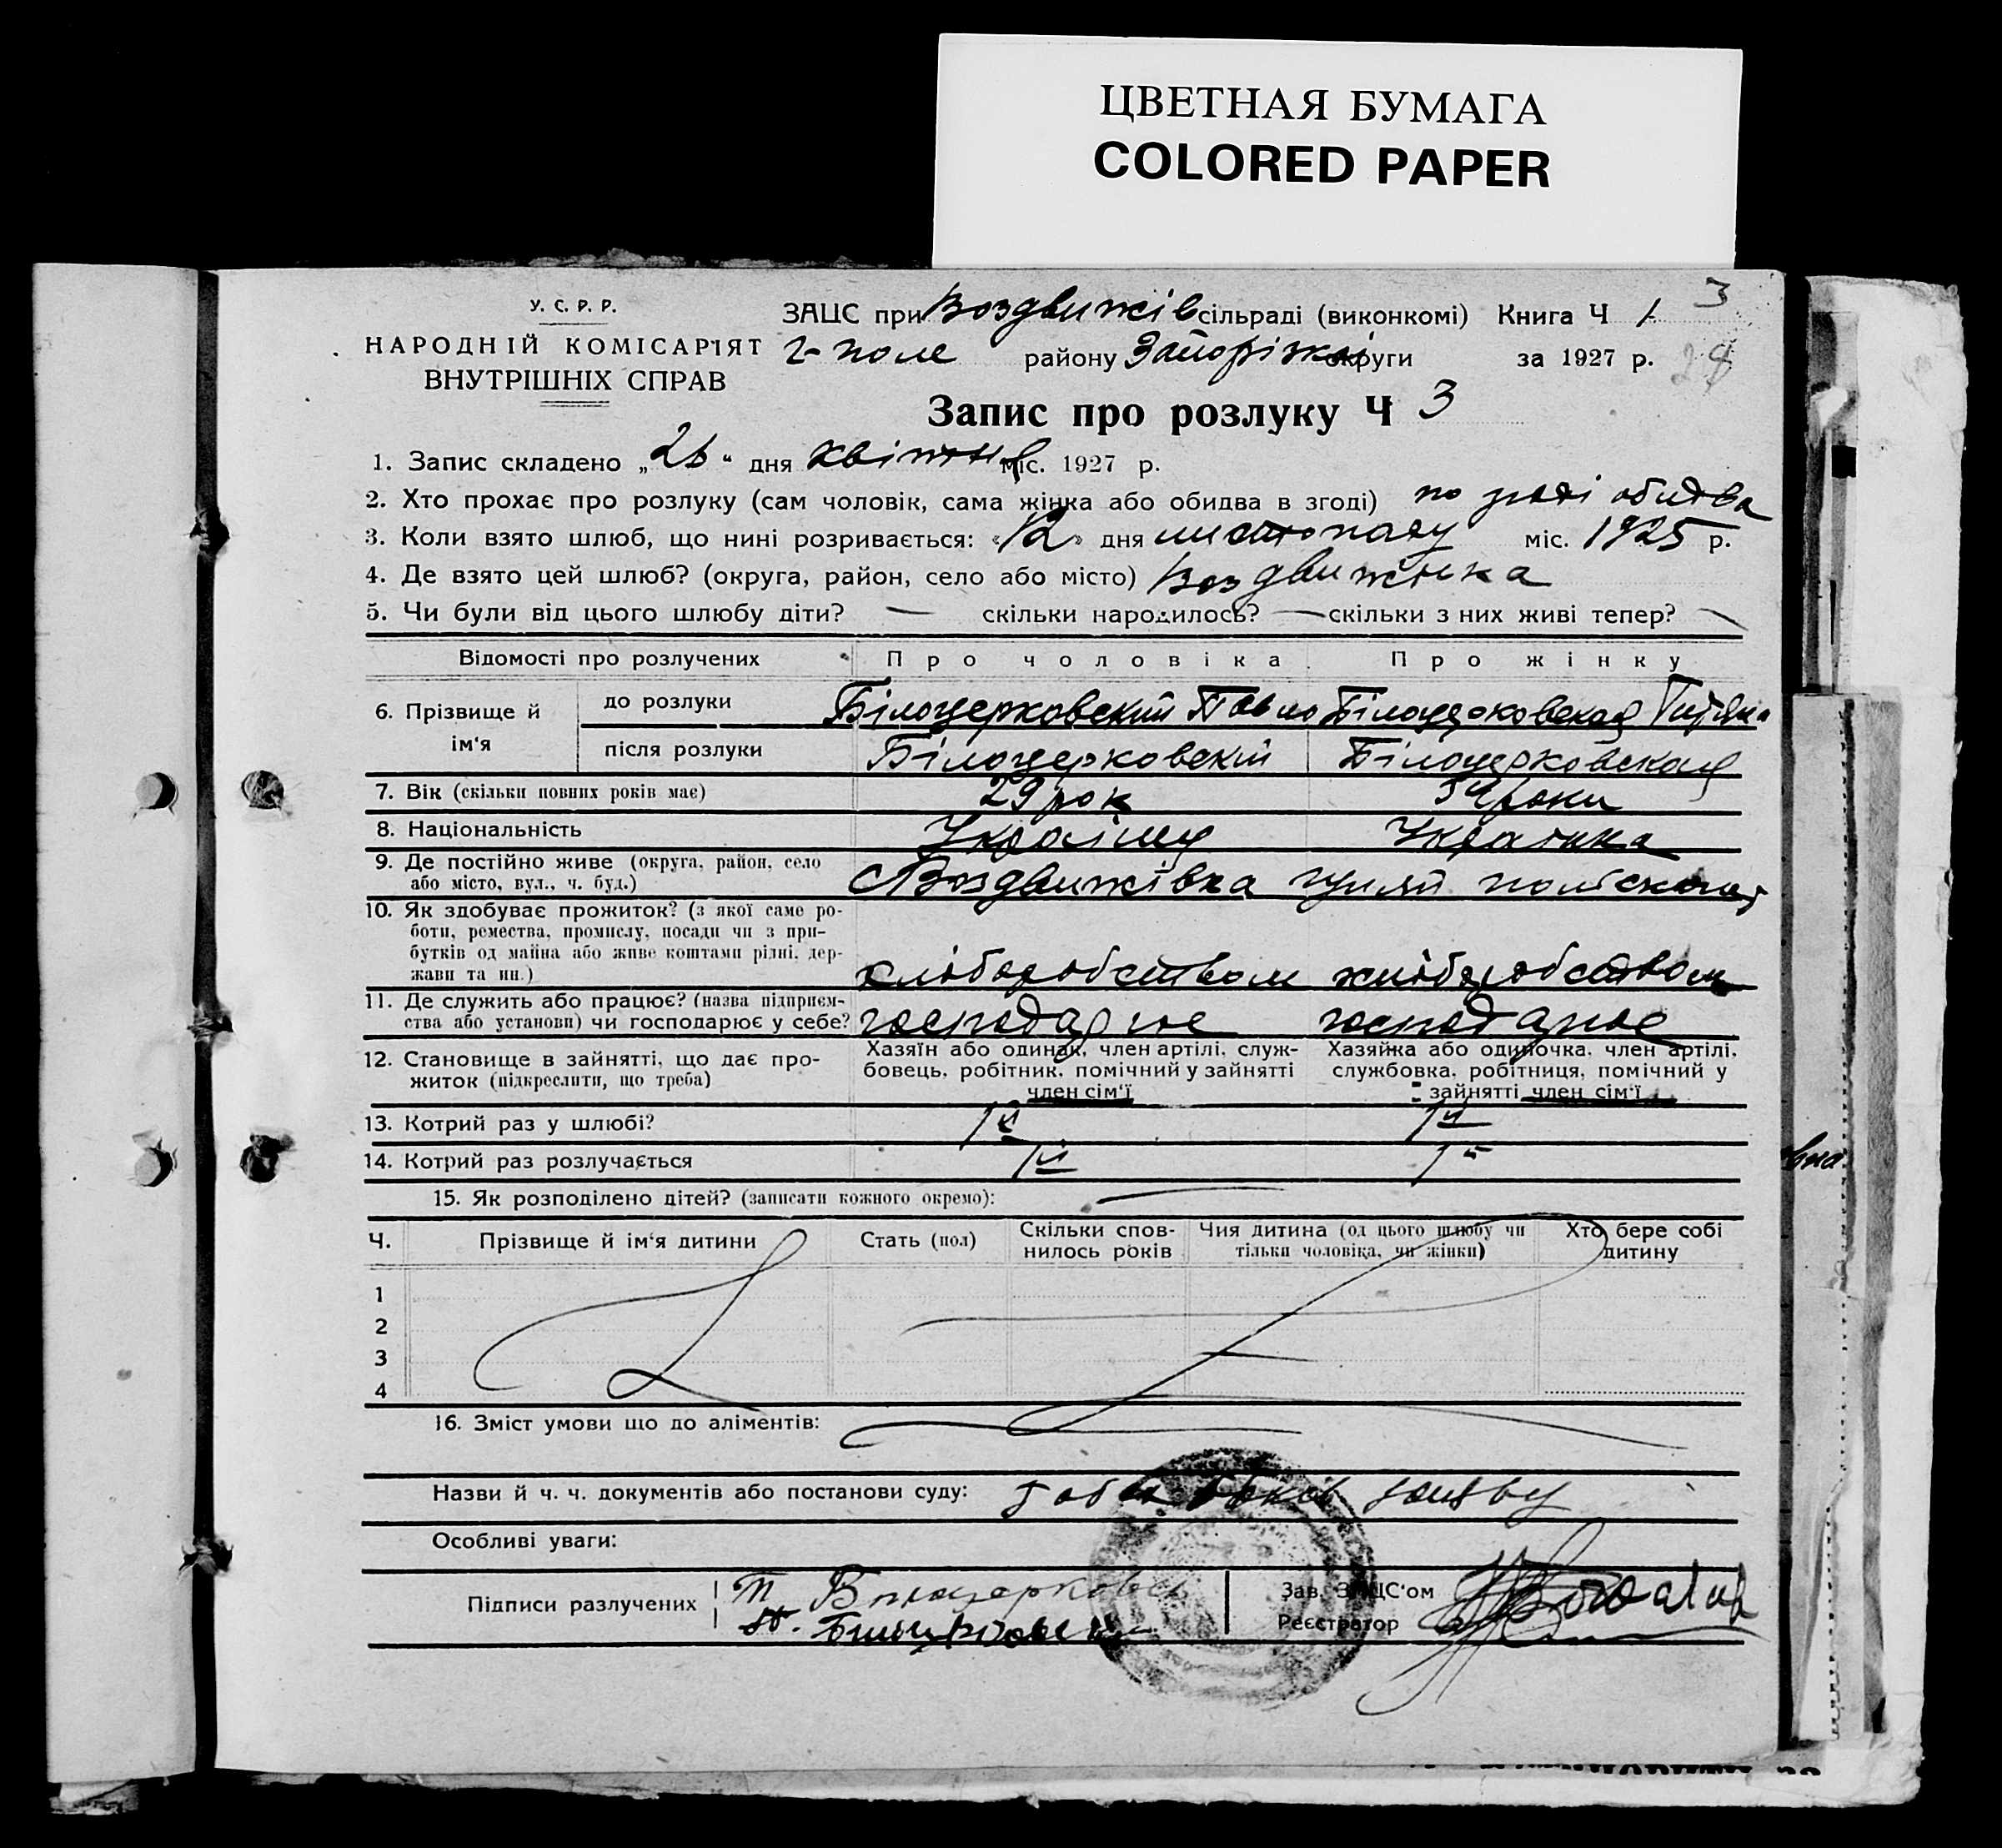 ЦВЕТНАЯ БУМАГА
COLORED PAPER
У. С. Р. Р.
НАРОДНІЙ КОМІСАРІЯТ
ВНУТРІШНІХ СПРАВ
ЗАЦС при Воздвижів сільраді (виконкомі) Книга Ч 1 3
Г-поле району Запоріжкі округи за 1927 р. 28
Запис про розлуку Ч 3
1. Запис складено „26“ дня квітня міс. 1927 р.
2. Хто прохає про розлуку (сам чоловік, сама жінка або обидва в згоді) по згоді обидва
3. Коли взято шлюб, що нині розривається: «12» дня листопаду міс. 1925 р.
4. Де взято цей шлюб? (округа, район, село або місто) Воздвижівка
5. Чи були від цього шлюбу діти? — скільки народилось? — скільки з них живі тепер? —
Відомості про розлучених Про чоловіка Про жінку
6. Прізвище й ім‘я
до розлуки Білоцерковский Павло Білоцерковская
після розлуки Білоцерковскій Білоцерковская
7. Вік (скільки повних років має) 29 рок роки
8. Національність Українец Українка
9. Де постійно живе (округа, район, село
або місто, вул., ч. буд.) Воздвижівка гуляй
10. Як здобуває прожиток? (з якої саме ро-
боти, ремества, промислу, посади чи з при-
бутків од майна або живе коштами рідні, дер-
жави та ин.) хліборобством хліборобством
11. Де служить або працює? (назва підприєм-
ства або установи) чи господарює у себе? господарює господарює
12. Становище в зайнятті, що дає про-
житок (підкреслити, що треба)
Хазяїн або одинак, член артілі, служ-
бовець, робітник, помічний у зайнятті
член сім‘ї
Хазяйка або одиночка, член артілі,
службовка, робітниця, помічний у
зайнятті член сім‘ї
13. Котрий раз у шлюбі? 1й 1й
14. Котрий раз розлучається 1й 1й
15. Як розподілено дітей? (записати кожного окремо): —
Ч. Прізвище й ім‘я дитини Стать (пол) Скільки спов-
нилось років Чия дитина (од цього шлюбу чи
тільки чоловіка, чи жінки) Хто бере собі
дитину
1
2
3
4
16. Зміст умови що до аліментів:
Назви й ч. ч. документів або постанови суду: заяву
Особливі уваги:
Підписи разлучених
Зав. ЗАЦС‘ом
Реєстратор